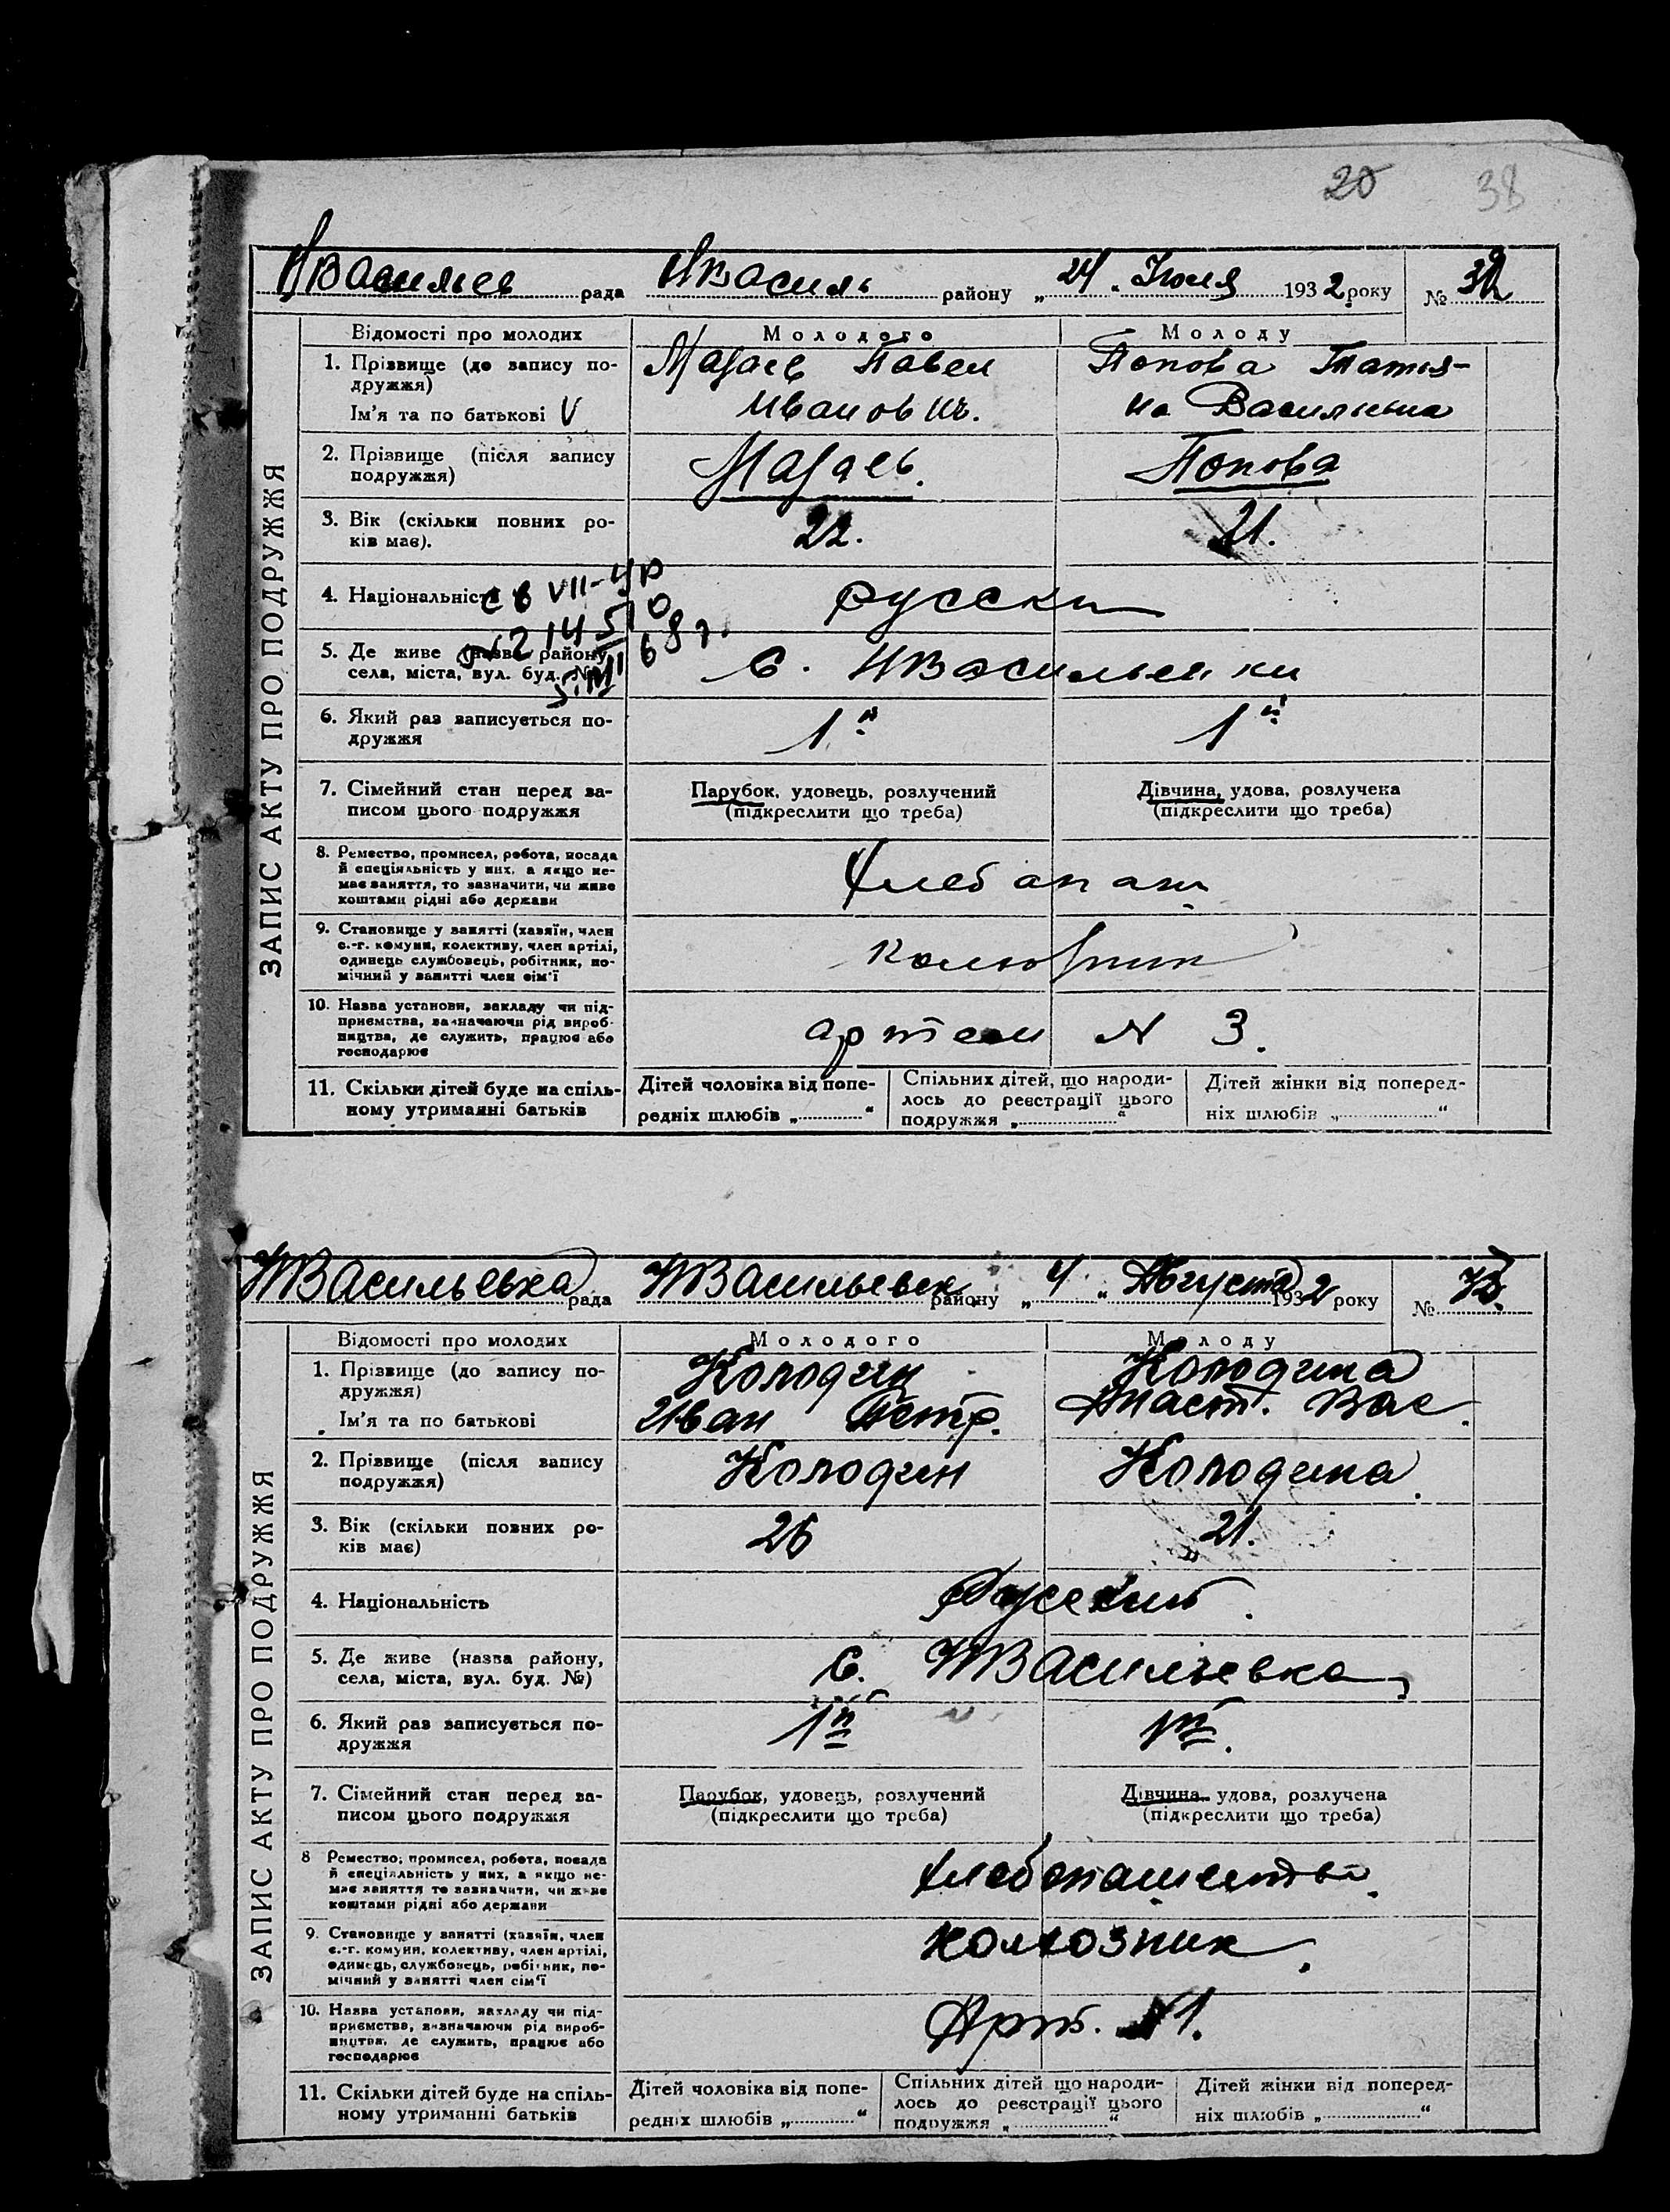 20 38
НВасильев рада НВасиль району „24" Июля 1932 року № 32
ЗАПИС АКТУ ПРО ПОДРУЖЖЯ
Відомості про молодих Молодого Молоду
1. Прізвище (до запису по- Мазаев Павел Попова Татья-
дружжя)
Ім'я та по батькові V Иванович. на Васильевна
2. Прізвище (після запису Мазаев. Попова
подружжя)
3. Вік (скільки повних ро- 22. 21.
ків має).
4. Національність русски
5. Де живе (назва району, с. НВасильевки
села, міста, вул. буд. №)
6. Який раз записується по- 1й 1й
дружжя
7. Сімейний стан перед за- Парубок, удовець, розлучений Дівчина, удова, розлучена
писом цього подружжя (підкреслити що треба) (підкреслити що треба)
8. Ремество, промисел, робота, посада
й спеціяльність у них, а якщо не-
має заняття, то зазначити, чи живе
коштами рідні або держави
9. Становище у занятті (хазяїн, член
с.-г. комуни, колективу, член артілі, колхозник
одинець службовець, робітник, по-
мічний у занятті член сім'ї
10. Назва установи, закладу чи під-
приємства, зазначаючи рід вироб- артели N 3.
ництва, де служить, працює або
господарює
11. Скільки дітей буде на спіль- Дітей чоловіка від попе- Спільних дітей, що народи- Дітей жінки від поперед-
ному утриманні батьків редніх шлюбів „ “ лось до реєстрації цього ніх шлюбів „ “
подружжя „ “
НВасильевка рада НВасильевск району „4" Августа 1932 року №
ЗАПИС АКТУ ПРО ПОДРУЖЖЯ
Відомості про молодих Молодого Молоду
1. Прізвище (до запису по- Колодин Колодина
дружжя)
Ім'я та по батькові Иван Петр. Анаст. Вас.
2. Прізвище (після запису Колодин Колодина.
подружжя)
3. Вік (скільки повних ро- 26 21.
ків має)
4. Національність Русский.
5. Де живе (назва району, с. НВасильевка
села, міста, вул. буд. №)
6. Який раз записується по- 1й 1й.
дружжя
7. Сімейний стан перед за- Парубок, удовець, розлучений Дівчина удова, розлучена
писом цього подружжя (підкреслити що треба) (підкреслити що треба)
8 Ремество, промисел, робота, посада
й спеціяльність у них, а якщо не-
має заняття то зазначити, чи живе
коштами рідні або держави
9. Становище у занятті (хазяїн, член
с.-г. комуни, колективу, член артілі, колхозник.
одинець, службовець, робітник, по-
мічний у занятті член сім'ї
10. Назва установи, закладу чи під-
приємства, зазначаючи рід вироб- Арт. N1.
ництва, де служить, працює або
господарює
11. Скільки дітей буде на спіль- Дітей чоловіка від попе- Спільних дітей що народи- Дітей жінки від поперед-
ному утриманні батьків редніх шлюбів „ “ лось до реєстрації цього ніх шлюбів „ “
подружжя „ “